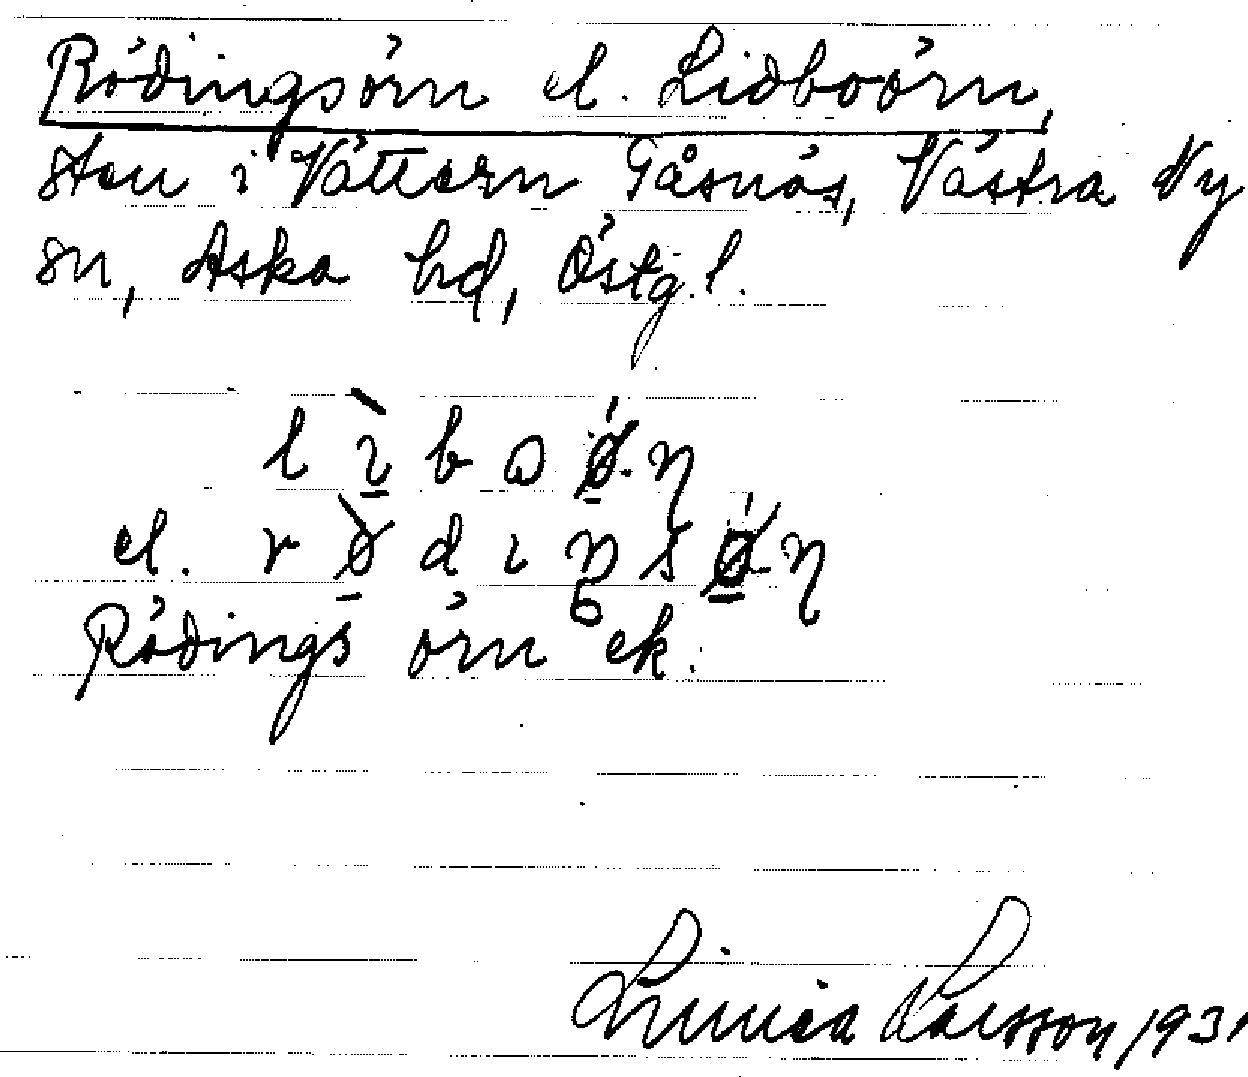 Rödingsörn el. Lidboörn,
sten i Vättern Gåsnäs, Västra Ny
sn, Aska hd, Östg.l.
el.
Rödings örn ek.
Linnea Larsson, 1931